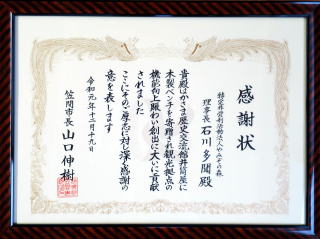 感謝状
特定非営利活動法人やみぞの森
理事長 石川多聞 殿
貴殿はかさま歴史交流館井筒屋に
木製ベンチを寄贈され観光拠点の
機能向上賑わい創出に大いに貢献
されました
ここにそのご厚志に対し深く感謝の
意を表します
令和元年十二月十九日
笠間市長 山口伸樹